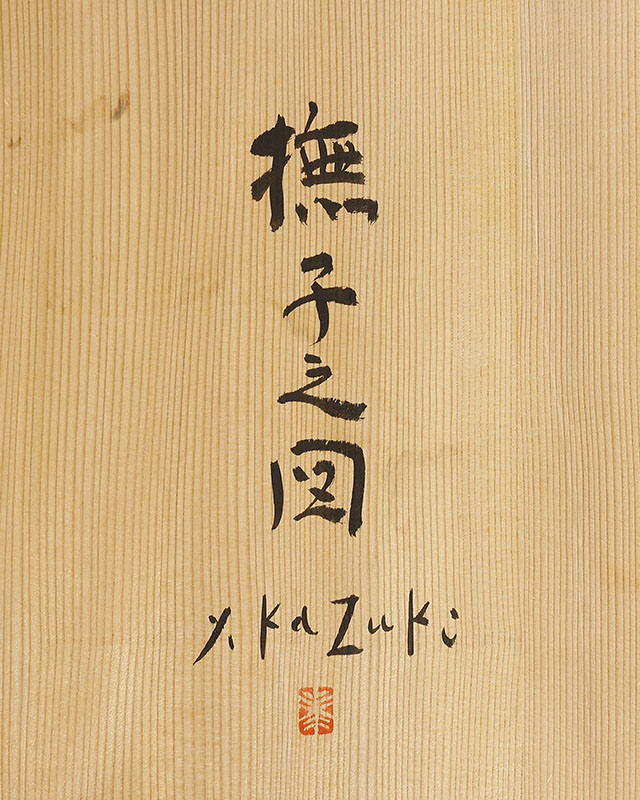 撫子之図
Y.KaZuKi